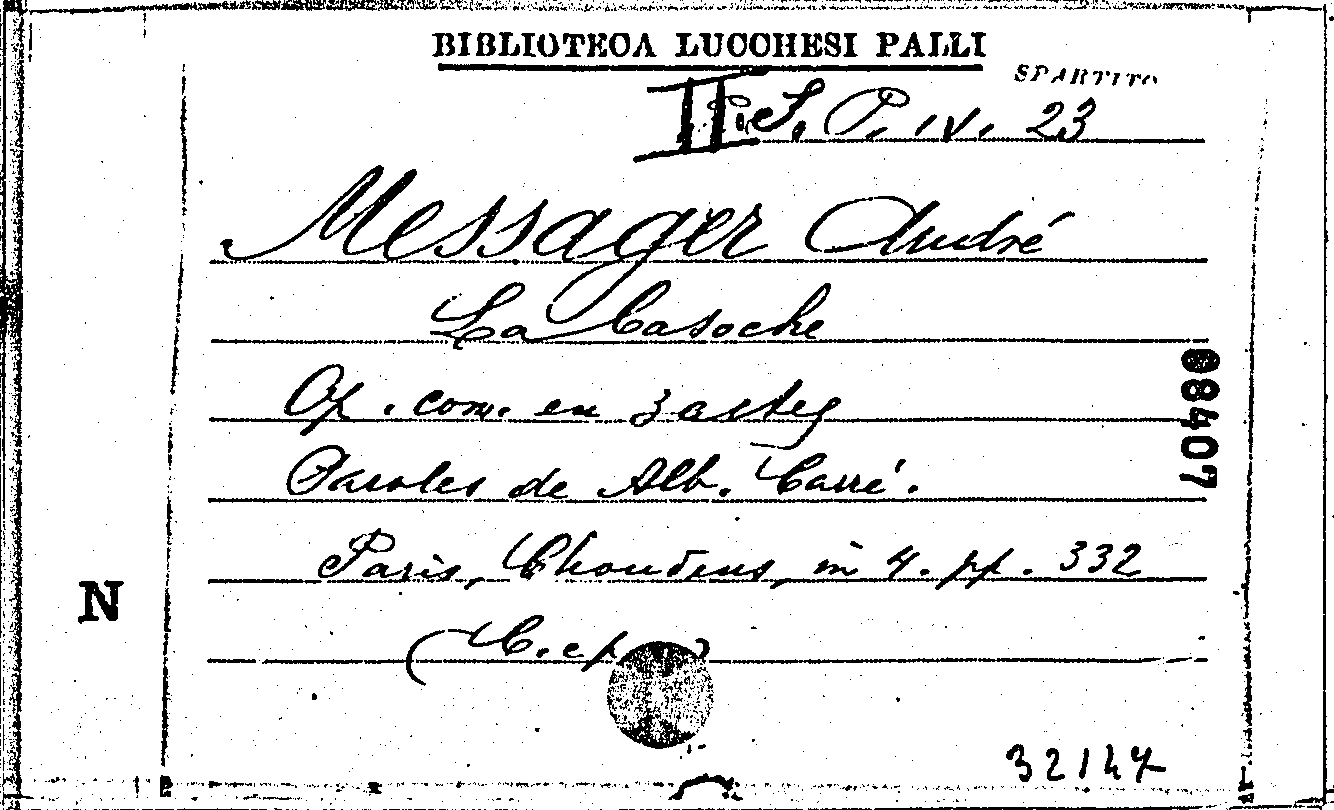 BIBLIOTECA LUCCHESI PALLI
SPARTITO
II S. P. IV. 23
Messager André
La Basoche
Op. com. en 3 actes
Paroles de Alb. Carré.
Paris, Choudens, in 4. pp. 332
(C. e p.)
88407
N
32147